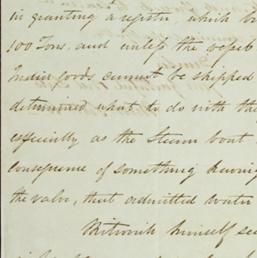 in granting a register which
100 Tons. and unless the vessel
India goods cannot be shipped
determined what to do with the
especially as the Steam boat
consequence of something having
the valve, that admitted water
himself